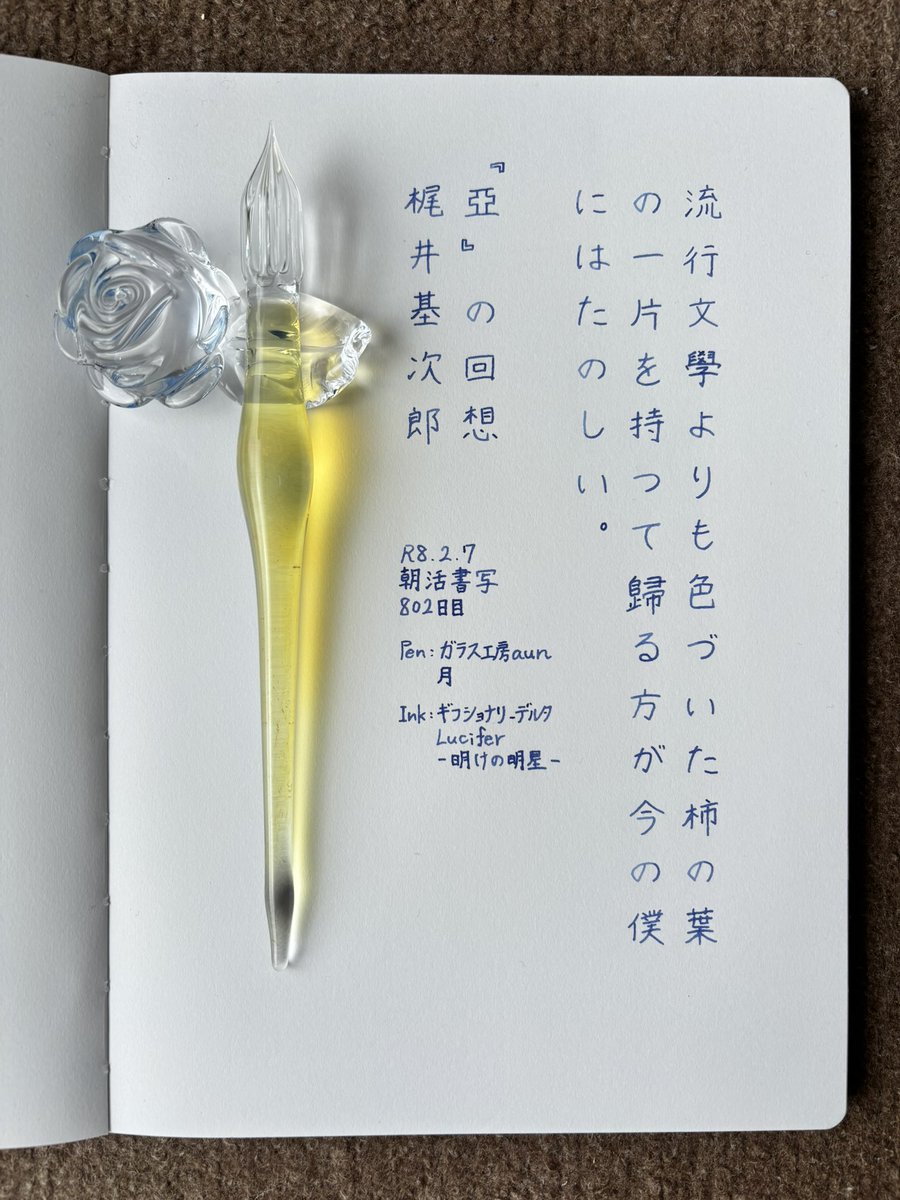 流行文學よりも色づいた柿の葉
の一片を持つて歸る方が今の僕
にはたのしい。
『亞』の回想
梶井基次郎
R8.2.7
朝活書写
802日目
Pen:ガラス工房aun
月
Ink:ギフショナリーデルタ
Lucifer
-明けの明星-